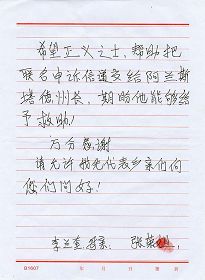 希望正义之士，帮助把
联名申诉信递交给阿兰斯
塔德州长，期盼他能够给
予救助！
万分感谢
请允许我先代表乡亲们向
您们问好！
李兰奎 张
B1607
年 月 日